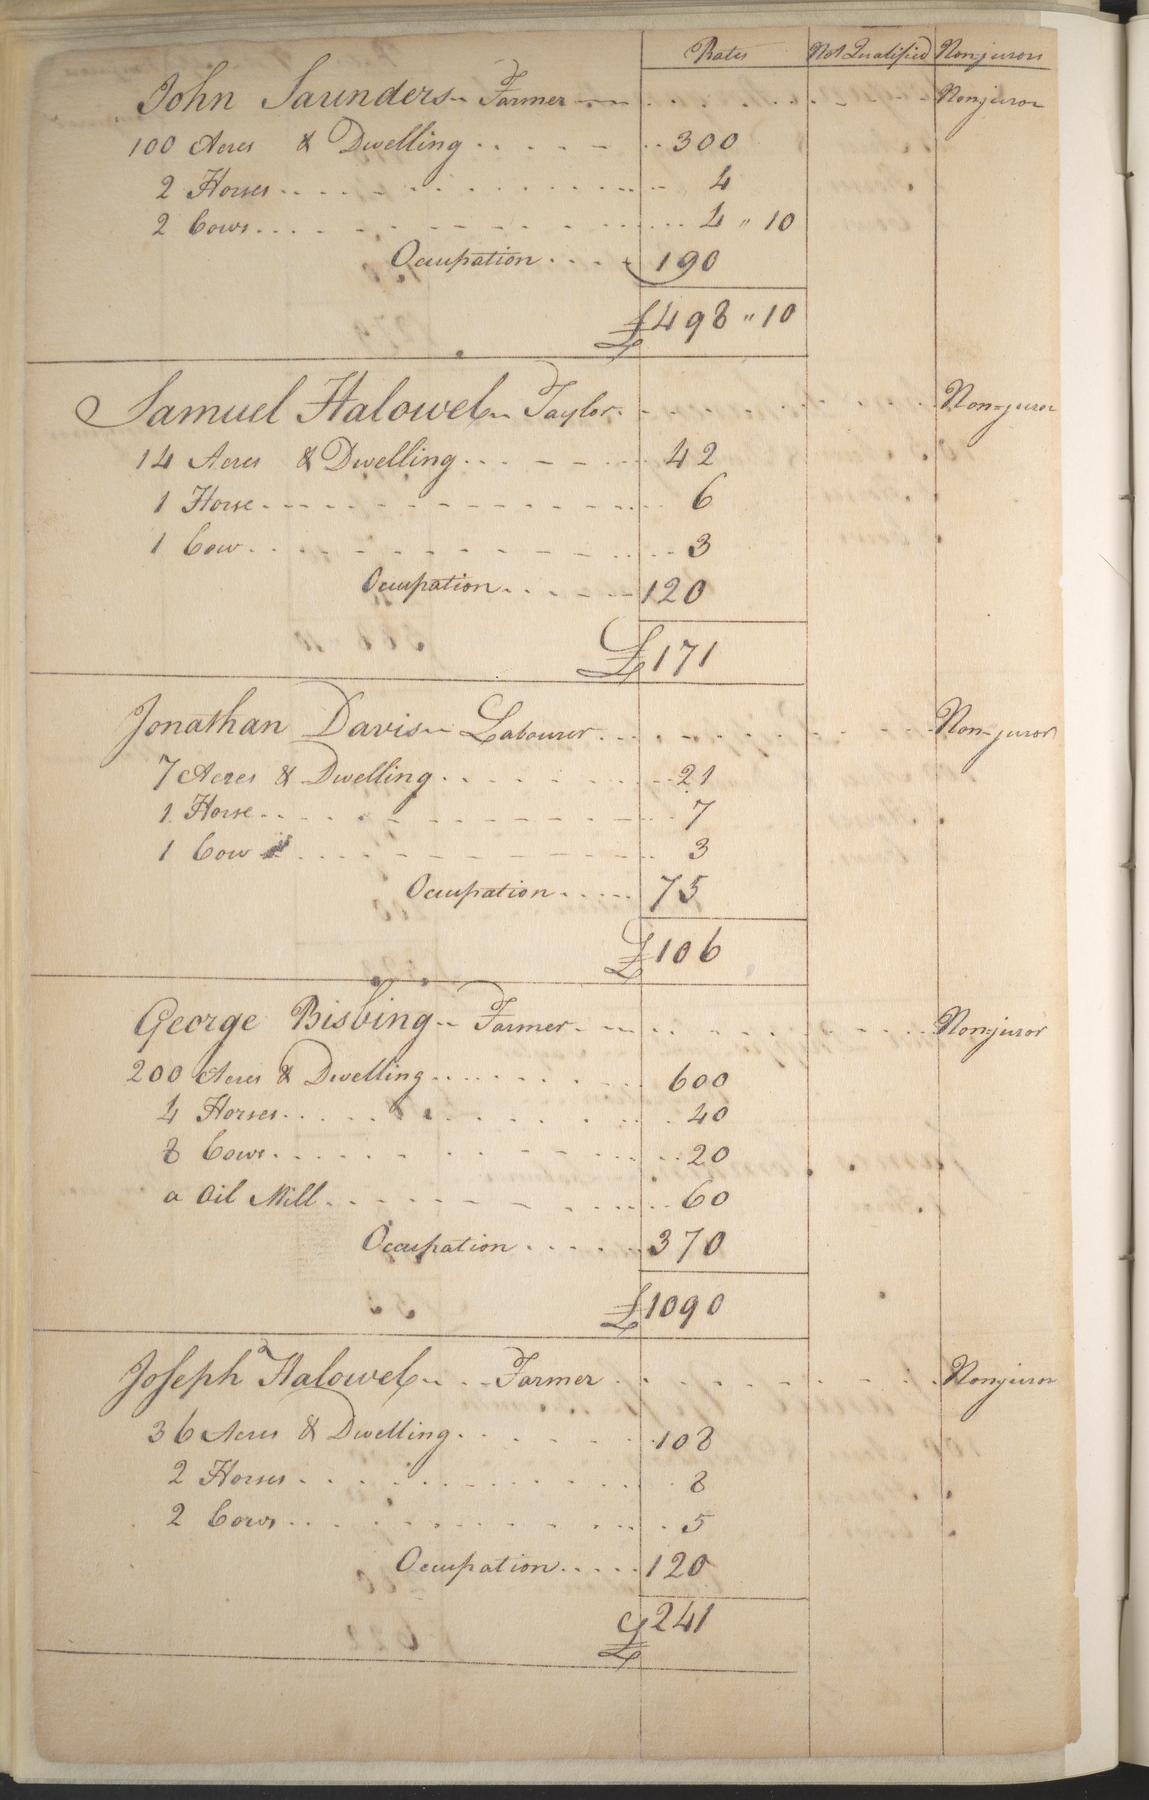 Rates Not Qualified Nonjurors
John Saunders Farmer Nonjuror
100 Acres & Dwelling 300
2 Horses 4
2 Cows 4 " 10
Occupation 190
£498 " 10
Samuel Halowel Taylor Non=juror
14 Acres & Dwelling 42
1 Horse 6
1 Cow 3
Occupation 120
£171
Jonathan Davis Labourer Non=juror
7 Acres & Dwelling 21
1 Horse 7
1 Cow 3
Occupation 75
£106
George Bisbing Farmer Non=juror
200 Acres & Dwelling 600
4 Horses 40
8 Cows 20
a Oil Mill 60
Occupation 370
£1090
Joseph Halowel Farmer Nonjuror
36 Acres & Dwelling 108
2 Horses 8
2 Cows 5
Occupation 120
£241